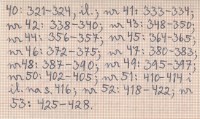 40: 321-324, il; nr 41: 333-334;
nr 42: 338-340; nr 43: 348-350;
nr 44: 356-357; nr 45: 364-365;
nr 46: 372-375; nr 47: 380-383;
nr 48: 387-390; nr 49: 395-397;
nr 50: 402-405; nr 51: 410-414 i
il. na s. 416; nr 52: 418-422; nr
53: 425-428.